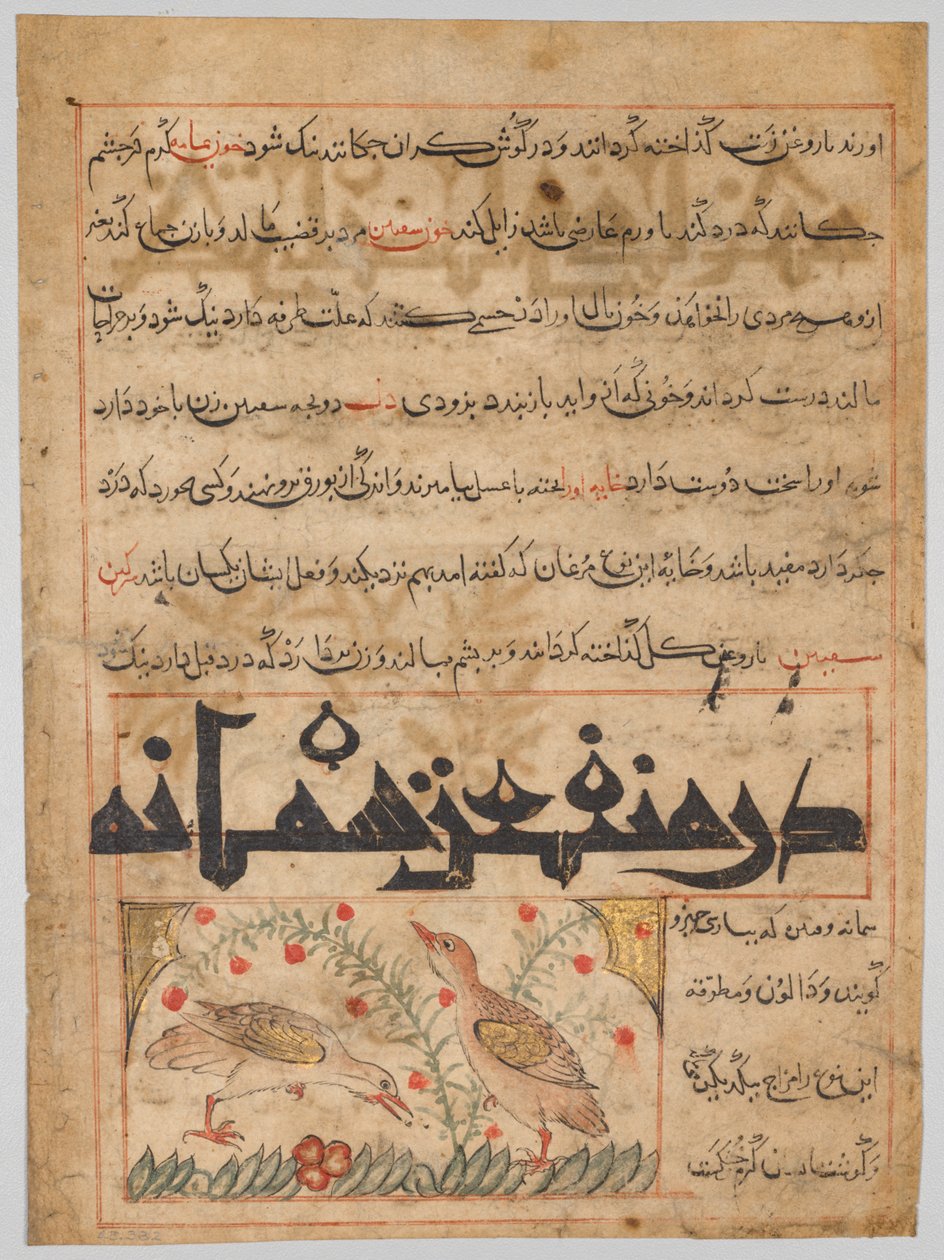 اورند با روغن زیت گذاخته گردانند و در گوش گران چکانند نیک شود خون یمامه گرم در چشم
چکانند که درد کند یا ورم عارضی باشد زایل کند خون سفنین مرد بر قضیب مالد و با زن جماع کند بغیر
از وی هیچ مردی را نخواهد و خون بال او را در کنند که علّت طرفه دارد نیک شود و بر جراحات
مالند درست گرداند و خونی که از وا بد باز بندد بزودی دو سفنین زن با خود دارد
شوی او را سخت دوست دارد خایه او را پخته با عسل بیامیزند و اندکی از بورق فرو نهند و کسی بخورد که درد
جگر دارد مفید باشد و خایه این نوع مرغان که گفته آمد بهم نزدیکند و فعل ایشان یکسان باشد سرکین
سفنین با روغن گل گذاخته گردانند و بر پشم مالند و زن بردارد که درد قبل دارد نیک شود
در منفعت سمانه
سمانه و که بپارسی
گویند و دالون و مطرّقه
این نوع را مزاج بیکدیگر
و گوشت ایشان گرم خشکست
43.382